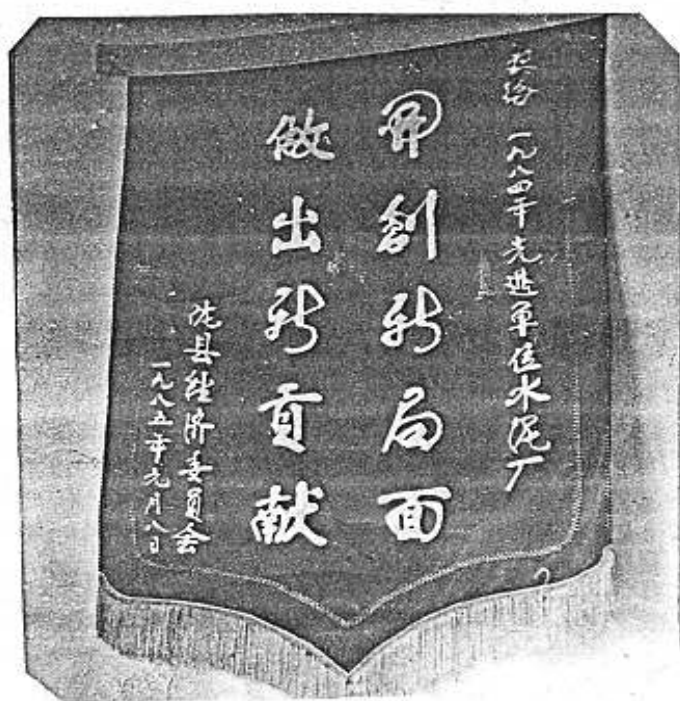 奖给 一九八四年先进单位水泥厂
開創新局面
做出新貢献
县经济委员会
一九八五年元月八日